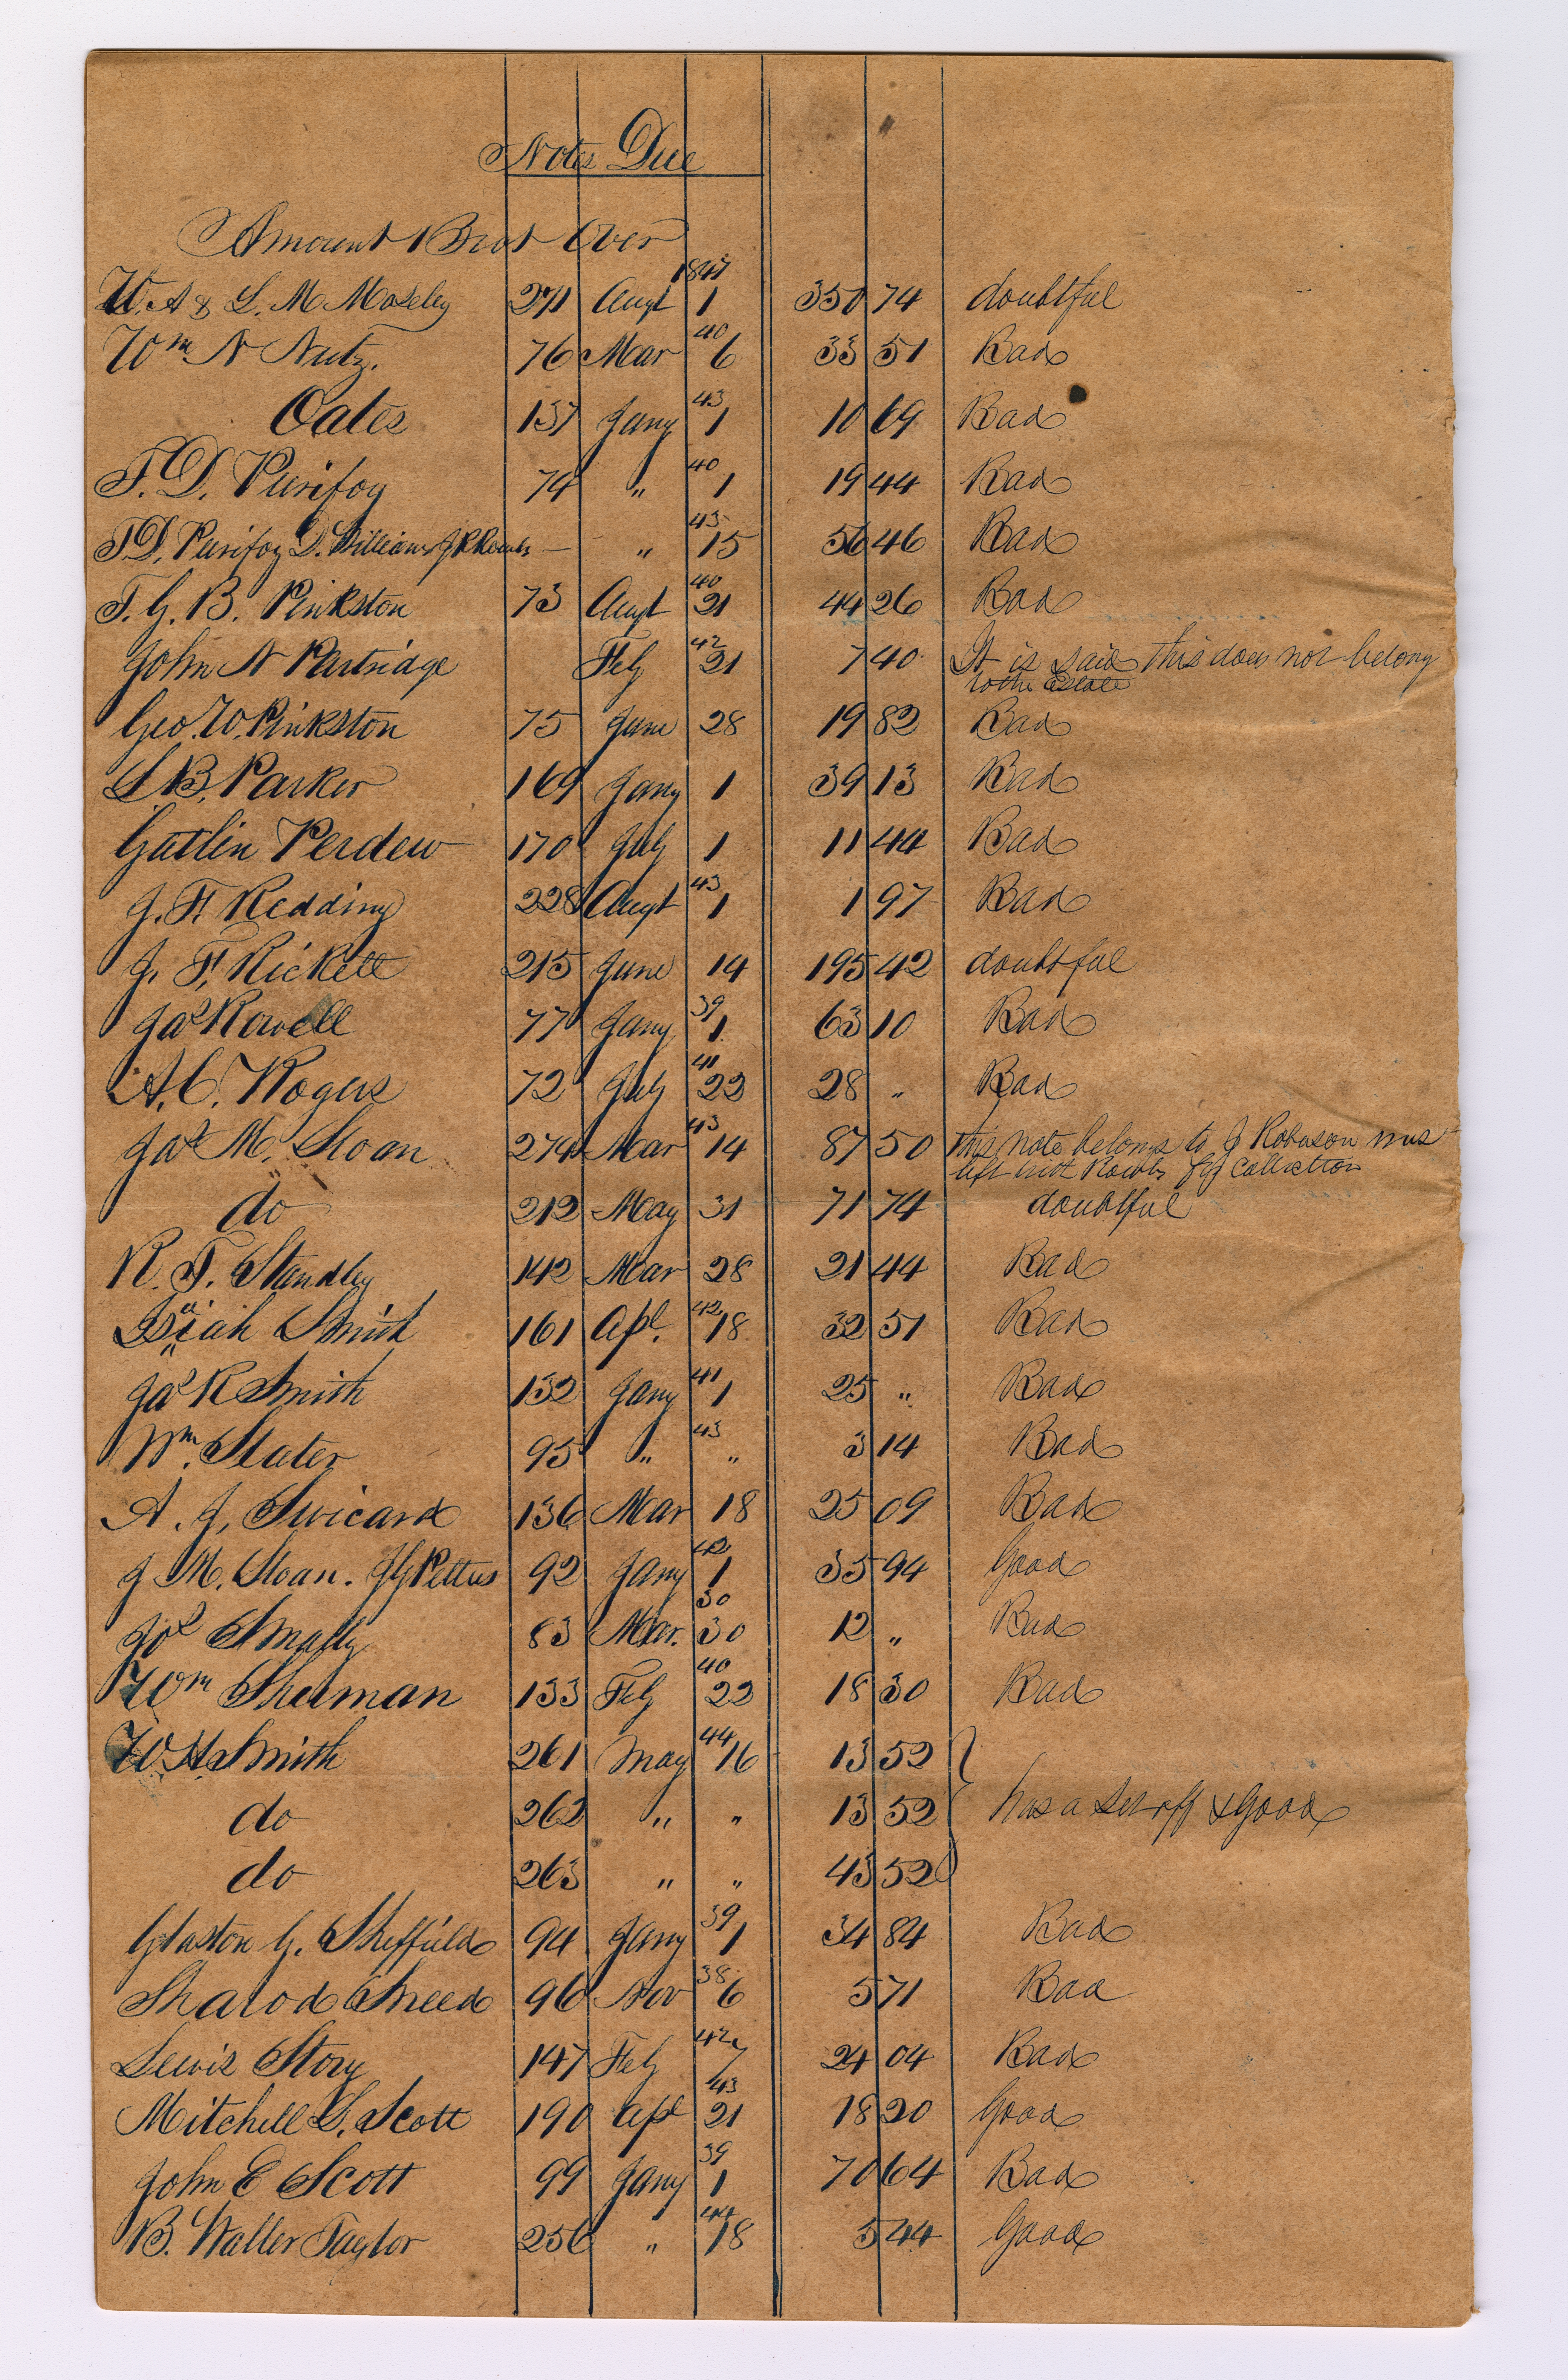 Notes Due
Amount Brot Over
W. A & L. M. Moseley 271 Augt 1847 1 350 74 doubtful
Wm N Nutz. 76 Mar 40 6 33 51 Bad
Oates 137 Jany 43 1 10 69 Bad
F. D. Purifoy 74 " 40 1 19 44 Bad
F. D. Purifoy D. Williams J R Rowls — " 43 15 56 46 Bad
F. G. B. Pinkston 73 Augt 40 21 44 26 Bad
John N Partridge Feby 42 21 7 40 It is said this does not belong
to the Estate
Geo. W. Pinkston 75 June 28 19 82 Bad
L B. Parker 169 Jany 1 39 13 Bad
Gatlin Perdew 170 July 1 11 44 Bad
J. F. Redding 228 Augt 43 1 1 97 Bad
J. F. Rickett 215 June 14 195 42 doubtful
Jas Rowell 77 Jany 39 1 63 10 Bad
A. C. Rogers 72 July 41 22 28 " Bad
Jas M. Sloan 274 Mar 43 14 87 50 this note belongs to J Robinson was
left with Rowls for Collection
do 212 May 31 71 74 doubtful
R. T. Standley 142 Mar 28 21 44 Bad
Isiah Smith 161 Apl. 42 18 32 51 Bad
Jas R Smith 132 Jany 41 1 25 " Bad
Wm. Slater 95 " 43 " 3 14 Bad
A. J. Swicard 136 Mar 18 25 09 Bad
J M. Sloan. J G Pettus 92 Jany 42 1 35 94 Good
Jos Smally 83 Mar. 30 30 12 " Bad
Wm Sherman 133 Feby 40 22 18 30 Bad
W. H. Smith 261 May 44 16 13 52
do 262 " " 13 52 has a set off & Good
do 263 " " 43 52
Glaston G. Sheffield 94 Jany 39 1 34 84 Bad
Sharod Sneed 96 Nov 38 6 5 71 Bad
Lewis Story 147 Feby 42 7 24 04 Bad
Mitchell L. Scott 190 Apl 43 21 18 20 Good
John E Scott 99 Jany 39 1 70 64 Bad
B. Waller Taylor 256 " 44 18 5 44 Good